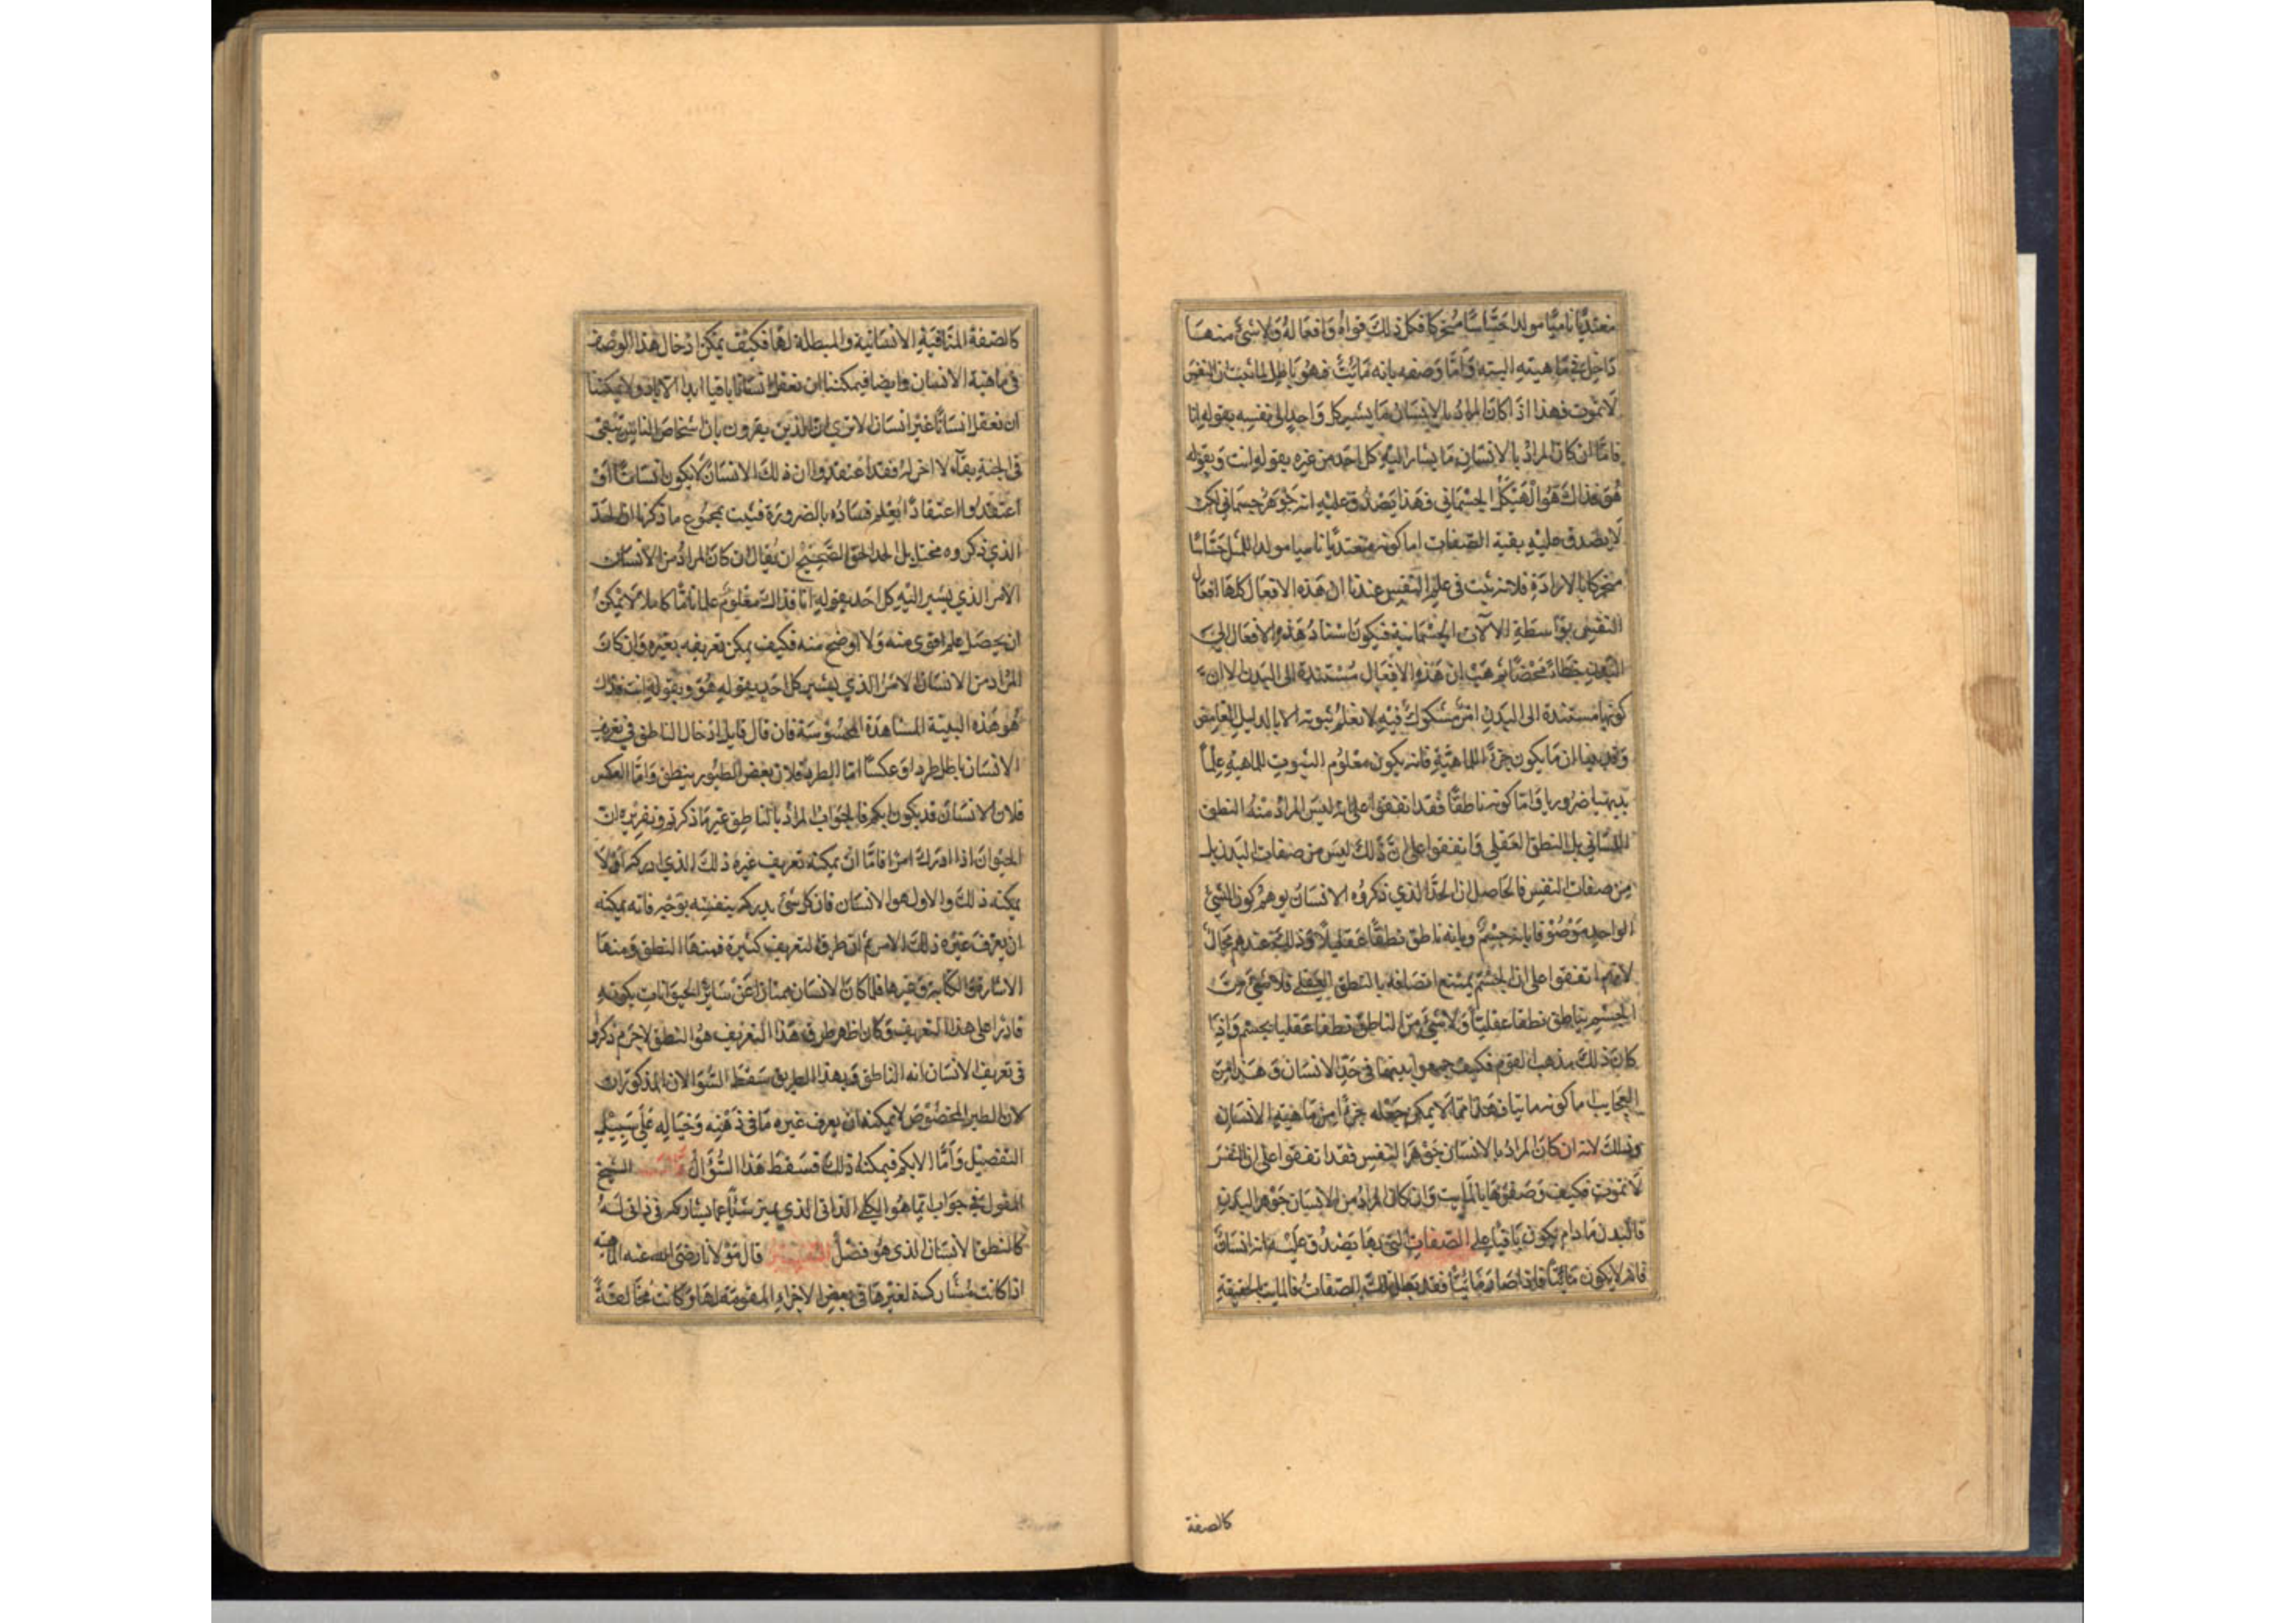 متغذيا ناميا مولدا حساسا متحركا فكل ذلك قواه وافعاله ولا شئ منها
داخل في ماهيته البته واما وصفه بانه مائت فهو باطل لما ثبت ان النفس
لا تموت فهذا اذا كان المراد بالانسان ما يشير كل واحد الى نفسه بقوله انا
فاما ان كان المراد بالانسان ما يشار اليه كل احد من غيره بقوله انت وبقوله
هو فذاك هو الهيكل الجسماني فهذا يصدق عليه انه جوهر جسماني لكن
لا يصدق عليه بقية الصفات اما كونه متغذيا ناميا مولدا للمثل حساسا
متحركا بالارادة فلانه ثبت في علم النفس عندنا ان هذه الافعال كلها افعال
النفس بواسطة الآلات الجسمانية فيكون اسناد هذه الافعال الى
البدن خطاء محضا ثم هب ان هذه الافعال مستندة الى البدن لا ان
كونها مستندة الى البدن امر مشكوك فيه لا نعلم ثبوته الا بالدليل الغامض
وقد بينا ان ما يكون جزء الماهية فانه يكون معلوم الثبوت للماهية علما
بديهيا ضروريا واما كونه ناطقا فقد اتفقوا على انه ليس المراد منه النطق
اللساني بل النطق العقلي واتفقوا على ان ذلك ليس من صفات البدن بل
من صفات النفس فالحاصل ان الحد الذي ذكروه الانسان يوهم كون الشئ
الواحد موصوفا بانه جسم وبانه ناطق نطقا عقليا وذلك عندهم محال
لانهم اتفقوا على ان الجسم يمتنع اتصافه بالنطق العقلي فلا شئ من
الجسم بناطق نطقا عقليا ولا شئ من الناطق نطقا عقليا بجسم واذا
كان ذلك مذهب القوم فكيف جمعوا بينهما في حد الانسان وهذا من
العجايب اما كونه مايتا فهذا مما لا يمكن جعله جزءا من ماهية الانسان
وذلك لانه ان كان المراد بالانسان جوهر النفس فقد اتفقوا على ان النفس
لا تموت فكيف وصفوها بالمايت وان كان المراد من الانسان جوهر البدن
فالبدن ما دام يكون باقيا على الصفات التي بها يصدق عليه انه انسان
فانه لا يكون مائتا فاذا صار مائتا فقد بطل تلك الصفات فالمايت بالحقيقة
كالصفة
كالصفة المنافية الانسانية والمبطلة لها فكيف يمكن ادخال هذا الوصف
في ماهية الانسان وايضا فيمكننا ان نعقل انسانا باقيا ابد الآباد ولا يمكننا
ان نعقل انسانا غير انسان الا ترى ان الذين يقرون بان اشخاص الناس تبقى
في الجنة بقاء لا اخر له فقد اعتقدوا ان ذلك الانسان لا يكون انسانا او
اعتقدوا اعتقادا يعلم فساده بالضرورة فثبت بمجموع ما ذكرنا ان الحد
الذي ذكروه مختل بل الحد الحق الصحيح ان يقال ان كان المراد من الانسان
الامر الذي يشير اليه كل احد بقوله انا فذاك معلوم علما تاما كاملا لا يمكن
ان يحصل علم اقوى منه ولا اوضح منه فكيف يمكن تعريفه بغيره وان كان
المراد من الانسان الامر الذي يشير كل احد بقوله هو وبقوله انت فذلك
هو هذه البنية المشاهدة المحسوسة فان قال قايل ادخال الناطق في تعريف
الانسان باطل طردا وعكسا اما الطرد فلان بعض الطيور ينطق واما العكس
فلان الانسان قد يكون ابكم فالجواب المراد بالناطق غير ما ذكرتم وتقريره ان
الحيوان اذا ادرك امرا فاما ان يمكنه تعريف غيره ذلك الذي ادركه او لا
يمكنه ذلك والاول هو الانسان فان كل شئ يدركه بنفسه بوجه فانه يمكنه
ان يعرف غيره ذلك الامر ثم ان طرق التعريف كثيرة فمنها النطق ومنها
الاشارة والكتابة وغيرها فلما كان الانسان ممتازا عن سائر الحيوانات بكونه
قادرا على هذا التعريف وكان اظهر طرق هذا التعريف هو النطق لا جرم ذكروا
في تعريف الانسان انه الناطق وبهذا الطريق سقط السؤالان المذكوران
لان الطير المخصوص لا يمكنه ان يعرف غيره ما في ذهنه وخياله على سبيل
التفصيل واما الابكم فيمكنه ذلك فسقط هذا السؤال قال الشيخ
المقول في جواب ايما هو الكلي الذاتي الذي يميز شيئا عما يشاركه في ذاتي له
كالنطق الانسان الذي هو فصل التفسير قال مولانا رضي الله عنه الماهية
اذا كانت مشاركة لغيرها في بعض الاجزاء المقومة لها وكانت مخالفة